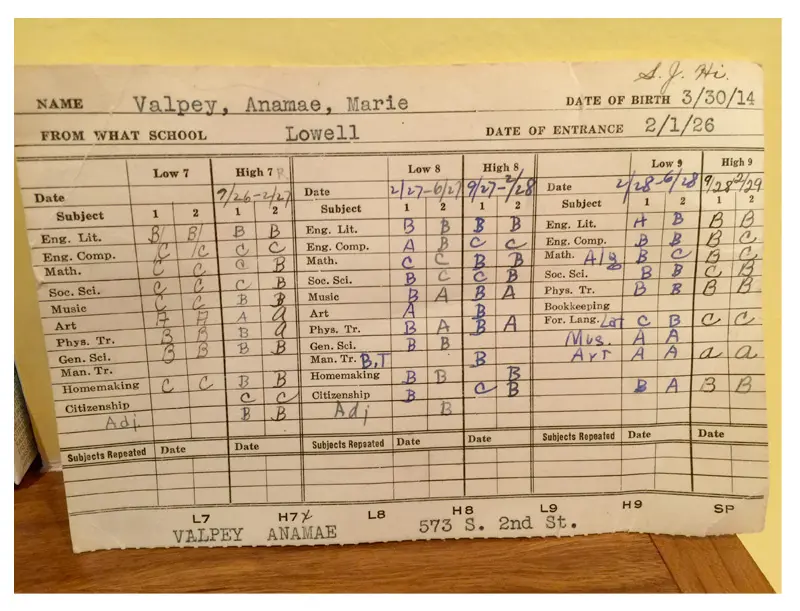 S. J. Hi.
NAME Valpey, Anamae, Marie DATE OF BIRTH 3/30/14
FROM WHAT SCHOOL Lowell DATE OF ENTRANCE 2/1/26
Low 7 High 7 Low 8 High 8 Low 9 High 9
Date 9/26-2/27 Date 2/27-6/27 9/27-2/28 Date 2/28-6/28 9/28-2/29
Subject 1 2 1 2 Subject 1 2 1 2 Subject 1 2 1 2
Eng. Lit. B B B B Eng. Lit. B B B B Eng. Lit. A B B B
Eng. Comp. C C C C Eng. Comp. A B C C Eng. Comp. B B B C
Math. C C C B Math. C C B B Math. Alg B C B C
Soc. Sci. C C C B Soc. Sci. B C C B Soc. Sci. B B C B
Music C C B B Music B A B A Phys. Tr. B B B B
Art A A A a Art A B Bookkeeping
Phys. Tr. B B B a Phys. Tr. B A B A For. Lang. Lat C B C C
Gen. Sci. B B B B Gen. Sci. B B Mus. A A
Man. Tr. Man. Tr. B,T B Art A A a a
Homemaking C C B B Homemaking B B B
Citizenship C C Citizenship B C B B A B B
Adj. B B Adj B
Subjects Repeated Date Date Subjects Repeated Date Date Subjects Repeated Date Date
L7 H7 L8 H8 L9 H9 SP
VALPEY ANAMAE 573 S. 2nd St.